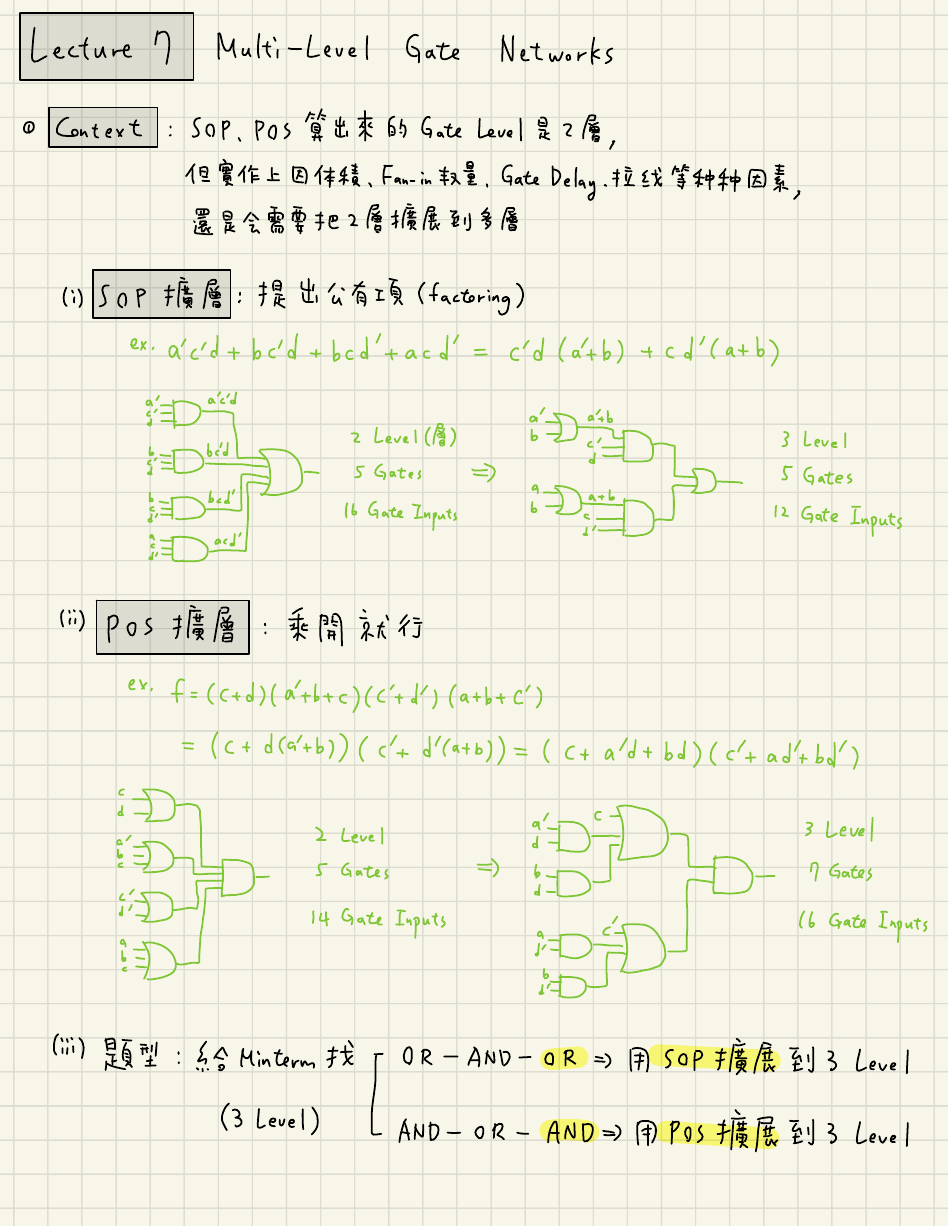 Lecture 7 Multi-Level Gate Networks
① Context : SOP、POS 算出來的 Gate Level 是 2 層,
但實作上因体積、Fan-in 數量、Gate Delay、拉线等种种因素,
還是会需要把 2 層擴展到多層
(i) SOP 擴層 : 提出公有項 (factoring)
ex. a'c'd + bc'd + bcd' + acd' = c'd (a'+b) + cd'(a+b)
a' c' d a'c'd
b c' d bc'd
b c d' bcd'
a c d' acd'
2 Level (層)
5 Gates ⇒
16 Gate Inputs
a' b a'+b c' d
a b a+b c d'
3 Level
5 Gates
12 Gate Inputs
(ii) POS 擴層 : 乘開就行
ex. f = (c+d)(a'+b+c)(c'+d')(a+b+c')
= (c + d(a'+b))(c' + d'(a+b)) = (c + a'd + bd)(c' + ad' + bd')
c d
a' b c
c' d'
a b c
2 Level
5 Gates ⇒
14 Gate Inputs
c
a' d
b d
c'
a d'
b d'
3 Level
7 Gates
16 Gate Inputs
(iii) 題型 : 給 Minterm 找 OR - AND - OR ⇒ 用 SOP 擴展 到 3 Level
(3 Level) AND - OR - AND ⇒ 用 POS 擴展 到 3 Level